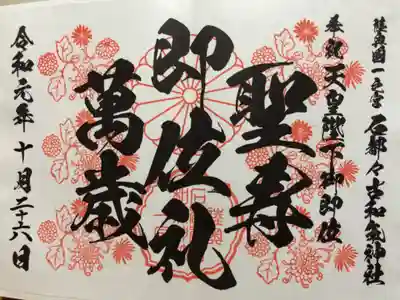 陸奥国一之宮 石都々古和氣神社
奉祝 天皇陛下御即位
聖寿
即位礼
萬歳
令和元年 十月二十六日